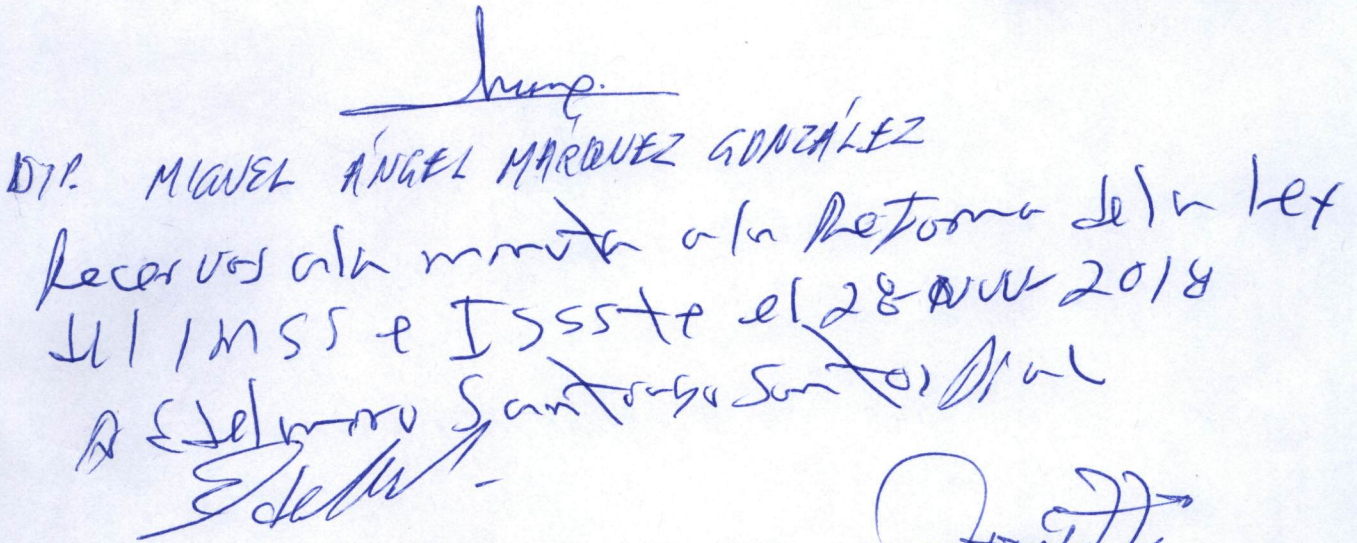 DIP. MIGUEL ÁNGEL MÁRQUEZ GONZÁLEZ
Recervas a la minuta a la Reforma de la Ley
del IMSS e ISSSte el 28 NOV 2018
Edelmiro Santiago Santos Díaz